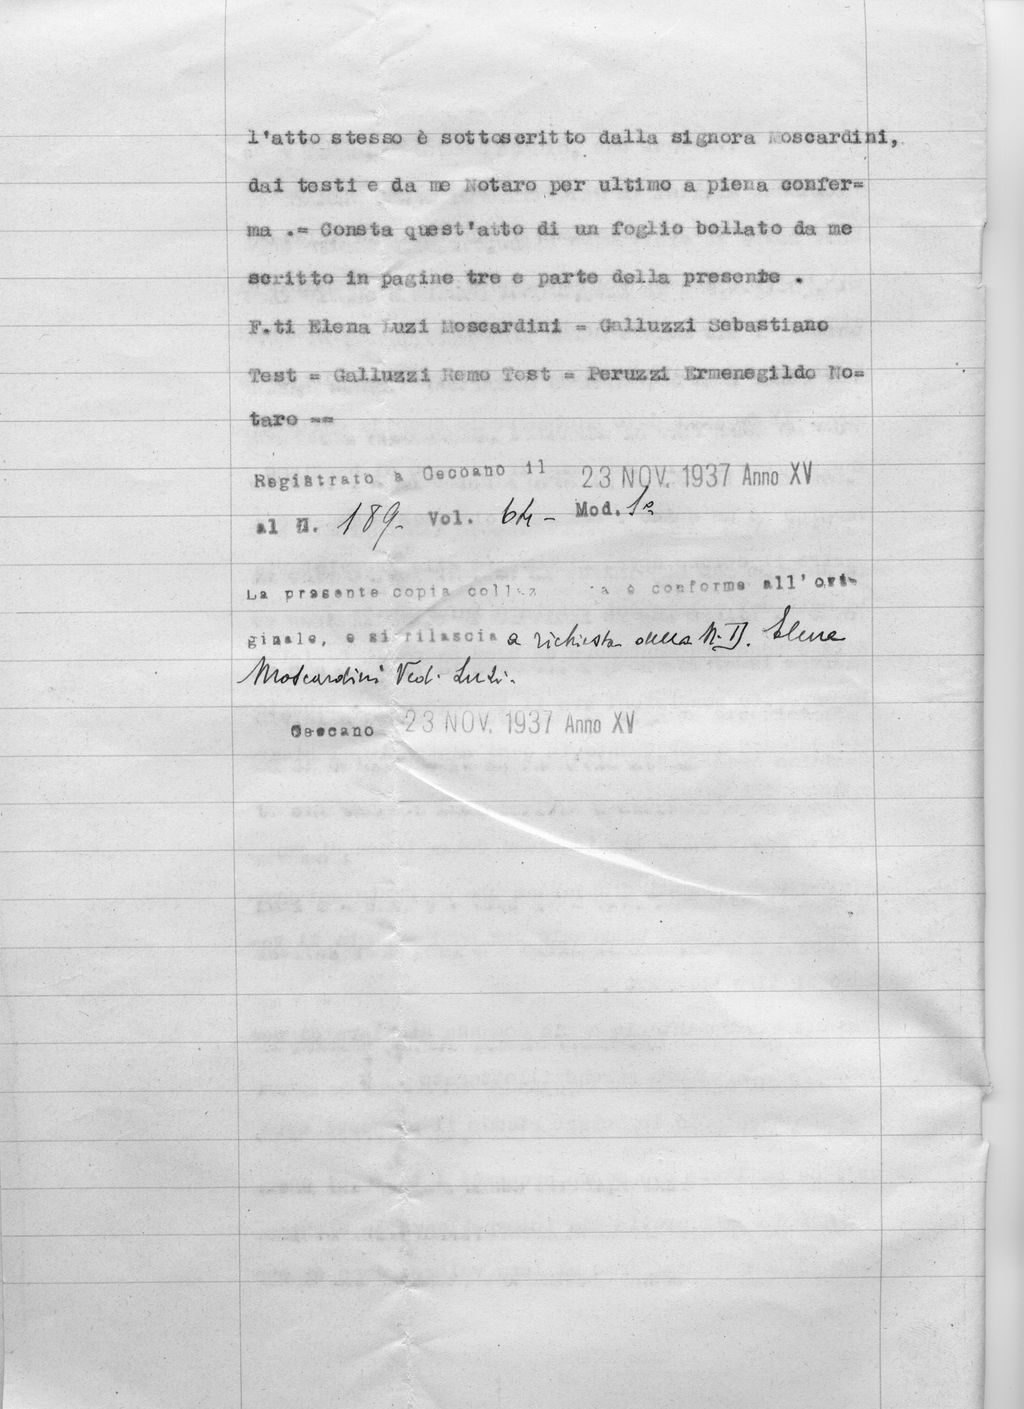 l'atto stesso è sottoscritto dalla signora Moscardini,
dai testi e da me Notaro per ultimo a piena confer=
ma .= Consta quest'atto di un foglio bollato da me
scritto in pagine tre e parte della presente .
F.ti Elena Luzi Moscardini = Galluzzi Sebastiano
Test = Galluzzi Remo Test = Peruzzi Ermenegildo No=
taro ==
Registrato a Ceccano il 23 NOV. 1937 Anno XV
al N. 189- Vol. 64- Mod. 1º
La presente copia è conforme all'ori-
ginale, e si rilascia a richiesta della N.D. Elena
Moscardini Ved. Luzi.
Ceccano 23 NOV. 1937 Anno XV